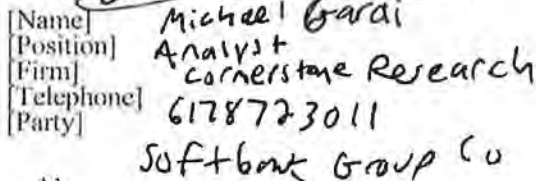 [Name] Michael Gardi
[Position] Analyst
[Firm] Cornerstone Research
[Telephone] 6178723011
[Party]
Softbank Group Co